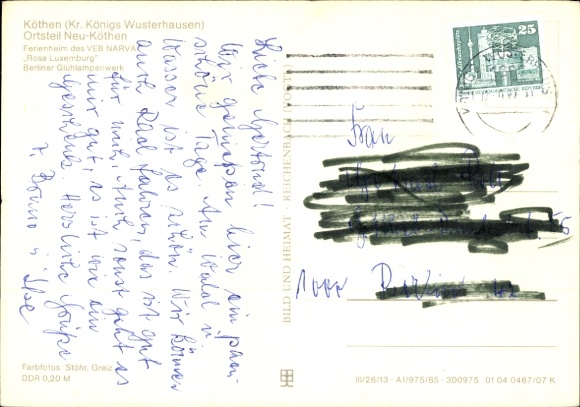 Köthen (Kr. Königs Wusterhausen)
Ortsteil Neu-Köthen
Ferienheim des VEB NARVA
„Rosa Luxemburg"
Berliner Glühlampenwerk
Liebe Gertrud!
Wir genießen hier ein paar
schöne Tage. Am Wald u.
Wasser ist es schön. Wir können
auch Rad fahren, das ist gut
für mich. Auch sonst geht es
mir gut, es ist wie ein
Geschenk. Herzliche Grüße
Bruno u. Ilse
Frau
1000
BILD UND HEIMAT · REICHENBACH (VOGTL)
25
Farbfotos Stöhr, Greiz
DDR 0,20 M
III/26/13 · A1/975/85 · 300975 01 04 0467/07 K